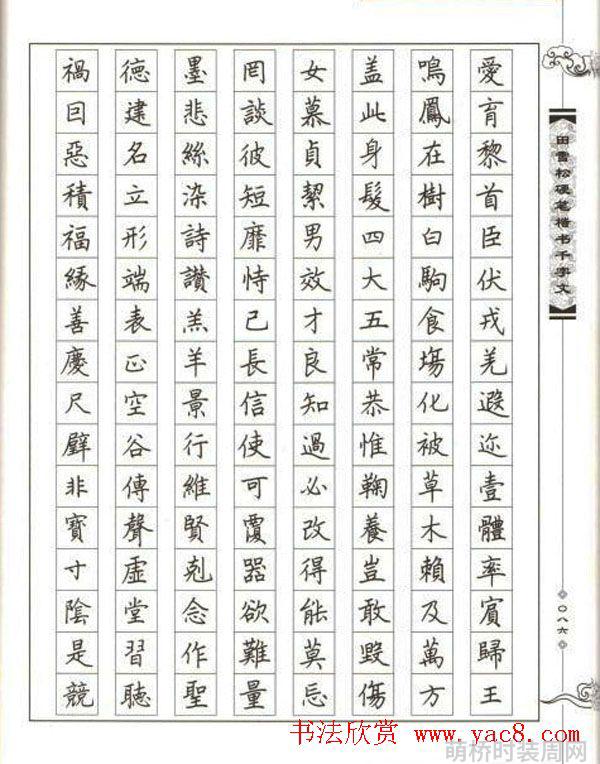 田雪松硬笔楷书千字文
愛育黎首臣伏戎羌遐迩壹體率賓歸王
鳴鳳在樹白駒食塲化被草木賴及萬方
盖此身髮四大五常恭惟鞠養豈敢毀傷
女慕貞絜男效才良知過必改得能莫忘
罔談彼短靡恃己長信使可覆器欲難量
墨悲絲染詩讃羔羊景行維賢剋念作聖
德建名立形端表正空谷傳聲虛堂習聽
禍因惡積福緣善慶尺璧非寶寸陰是競
〇八六
书法欣赏 www.yac8.com
萌桥时装周网